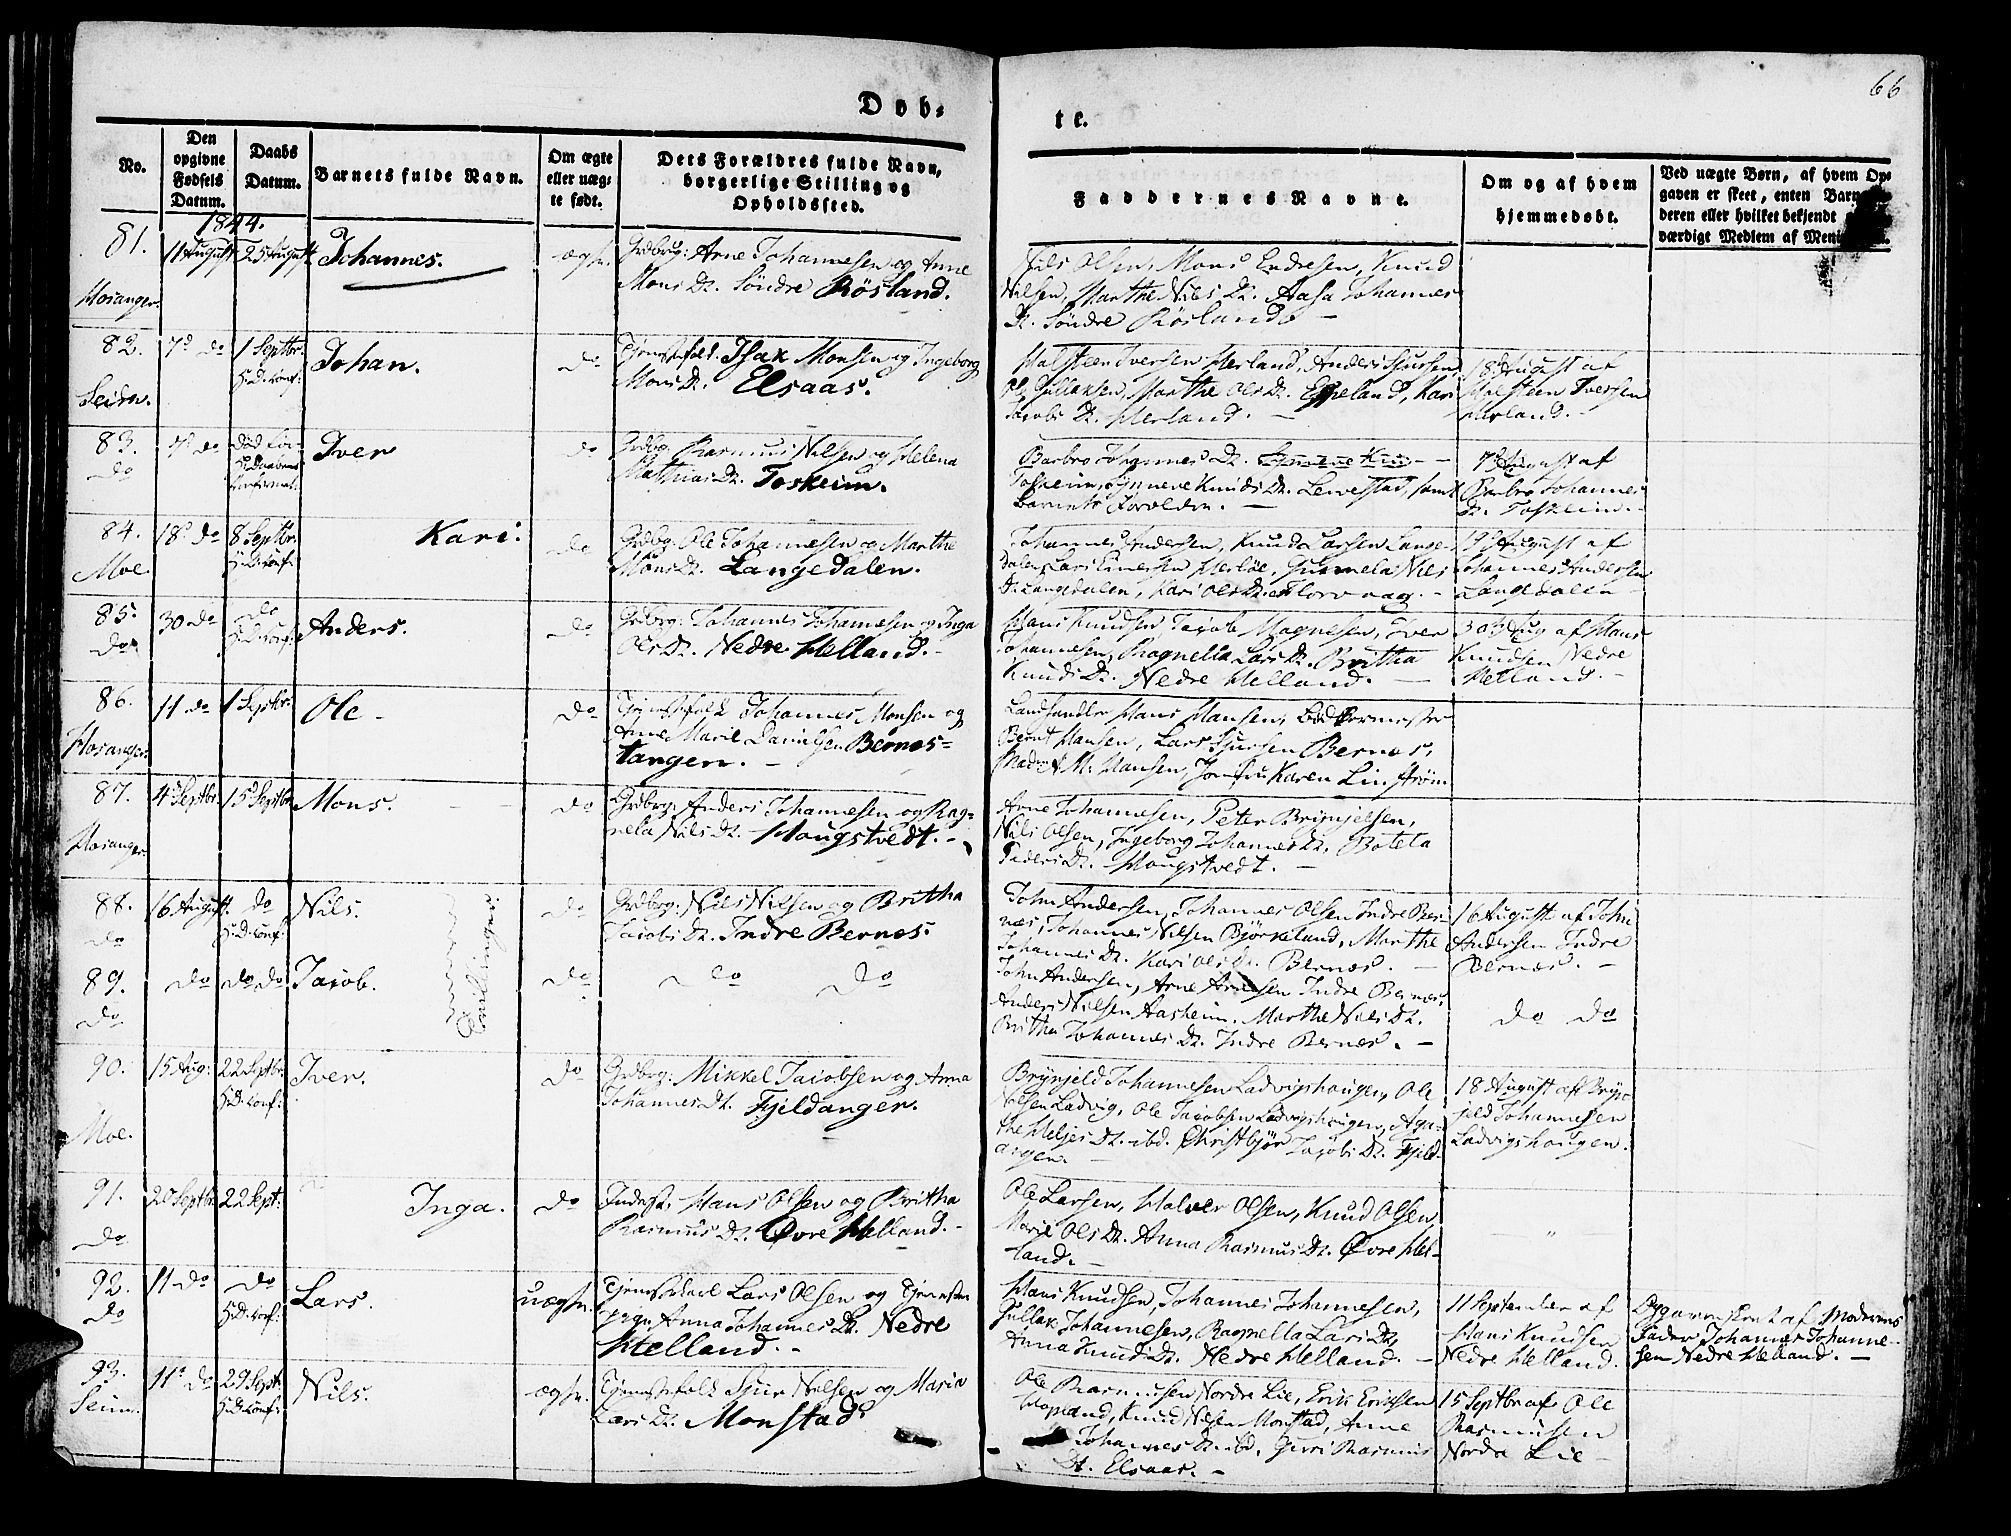 66
Døb-
te.
No.
Den opgivne Fødsels Datum.
Daabs Datum.
Barnets fulde Navn.
Om ægte eller uæg-te født.
Dets Forældres fulde Navn, borgerlige Stilling og Opholdssted.
Faddernes Navne.
Om og af hvem hjemmedøbt.
Ved uægte Børn, af hvem Op-
gaven er skeet, enten Barn
deren eller hvilket bekjendt
værdigt Medlem af Meni
1844.
81. 11 August 25 August Johannes. ægte.
Hosanger.
Grdbrg: Arne Johannesen og Anne
Mons Dt. Söndre Rösland.
Nils Olsen, Mons Endresen, Knud
Nilsen, Marthe Nils Dt. Aasa Johannes
Dt. Söndre Röslande
82. 7de do 1 Septbr. Johan. do
Seim. H.D. Konf:
Tjenstfolk. Isak Monsen og Ingeborg
Mons Dt. Elsaas.
Halsteen Iversen Herland, Anders Sjursen,
Ole Gullaksen, Marthe Ols Dt. Eppeland, Kari
Jacobs Dt. Herland.
18 August af
Halsteen Iversen
Herland.
83. 7de do død før Iver do
do Hj.daabens
Konfirmat:
Grdbg. Rasmus Nilsen og Helena
Mathias Dt. Toskeim.
Barbro Johannes Dt.
Toskeim, Synneve Knuds Dt. Levestad, samt
Barnets Forældre.
7de August af
Barbro Johannes
Dt. Toskeim.
84. 18de do 8 Septbr. Kari: do
Moe. H.D. Konf:
Grdbg: Ole Johannesen og Marthe
Mons Dt. Langedalen.
Johannes Andersen, Knud Larsen Lange-
dalen, Lars Einersen Herlöe, Gunnela Nils
Dt. Langedalen, Kari Ols Dt. Florvaag.
19 August af
Johannes Andersen
Langedalen
85. 30 do do Anders. do
do H.D. Konf:
Grdbrg: Johannes Johannesen og Inga
Ols Dt. Nedre Helland.
Hans Knudsen, Jacob Magnesen, Iver
Johannesen, Ragnella Lars Dt. Britha
Knuds Dt. Nedre Helland.
30 Aug af Hans
Knudsen Nedre
Helland.
86. 11 do 1 Septbr: Ole do
Hosanger.
Tjenstfolk Johannes Monsen og
Anne Marie Danielsen Bernes-
tangen.
Landhandler Hans Hansen, Bødkermester
Bernt Hansen, Lars Sjursen Bernes,
Mad: A. M. Hansen, Jomfru Karen Linström
87. 4de Septbr. 15 Septbr. Mons. do
Hosanger.
Grdbrg: Anders Johannesen og Rag-
nela Nils Dt. Hougstvedt.
Arne Johannesen, Peter Brynjelsen,
Nils Olsen, Ingeborg Johannes Dt. Boteta
Peders Dt. Hougstvedt.
88. 16 August. do Nils. do
do H.D. Konf:
Tvillinger.
Grdbrg: Nils Nilsen og Britha
Jacobs Dt. Indre Bernes.
John Andersen, Johannes Olsen Indre Ber-
nes, Johannes Nilsen Björkeland, Marthe
Johannes Dt. Kari Ols Dt. Bernes.
16 August af John
Andersen Indre
Bernes.
89. do do do Jacob. do do do
do
John Andersen, Arne Arnesen Indre Bernes,
Anders Nilsen Aasheim, Marthe Nils Dt.
Britha Johannes Dt. Indre Bernes.
do do
90. 15 Aug: 22 Septbr. Iver. do
Moe. H.D. Konf:
Grdbrg: Mikkel Jacobsen og Anna
Johannes Dt. Fjeldanger.
Brynjeld Johannesen Ladvigshougen, Ole
Nilsen Ladvig, Ole Jacobsen Ladvigshougen, Aga-
the Heljes Dt. ibd. Christbjör Jacobs Dt. Fjeld-
angen.
18 August af Bryn-
jeld Johannesen
Ladvigshougen.
91. 20 Septbr 22 Sept: Inga. do
do
Inderst. Hans Olsen og Britha
Rasmus Dt. Øvre Helland.
Ole Larsen, Halver Olsen, Knud Olsen,
Marie Ols Dt. Anna Rasmus Dt. Øvre Hel-
land.
"
92. 11 do do Lars. uægte.
do H.D. Konf:
Tjenestkarl Lars Olsen og Tjeneste
pige, Anna Johannes Dt. Nedre
Helland.
Hans Knudsen, Johannes Johannesen,
Gullak Johannesen, Ragnella Lars Dt.
Anna Knuds Dt. Nedre Helland.
11 September af
Hans Knudsen
Nedre Helland.
Opgaven skeet af Moderens
Fader Johannes Johanne-
sen Nedre Helland.
93. 11te do 29 Sept: Nils. ægte.
Seim. H.D. Konf:
Tjenstfolk Sjur Nilsen og Maria
Lars Dt. Monstad.
Ole Rasmusen Nordre Lie, Erik Eriksen
Hopland, Knud Nilsen Monstad, Anne
Johannes Dt. ibd. Gurri Rasmus
Dt. Elsaas.
15 Septbr af Ole
Rasmusen
Nordre Lie